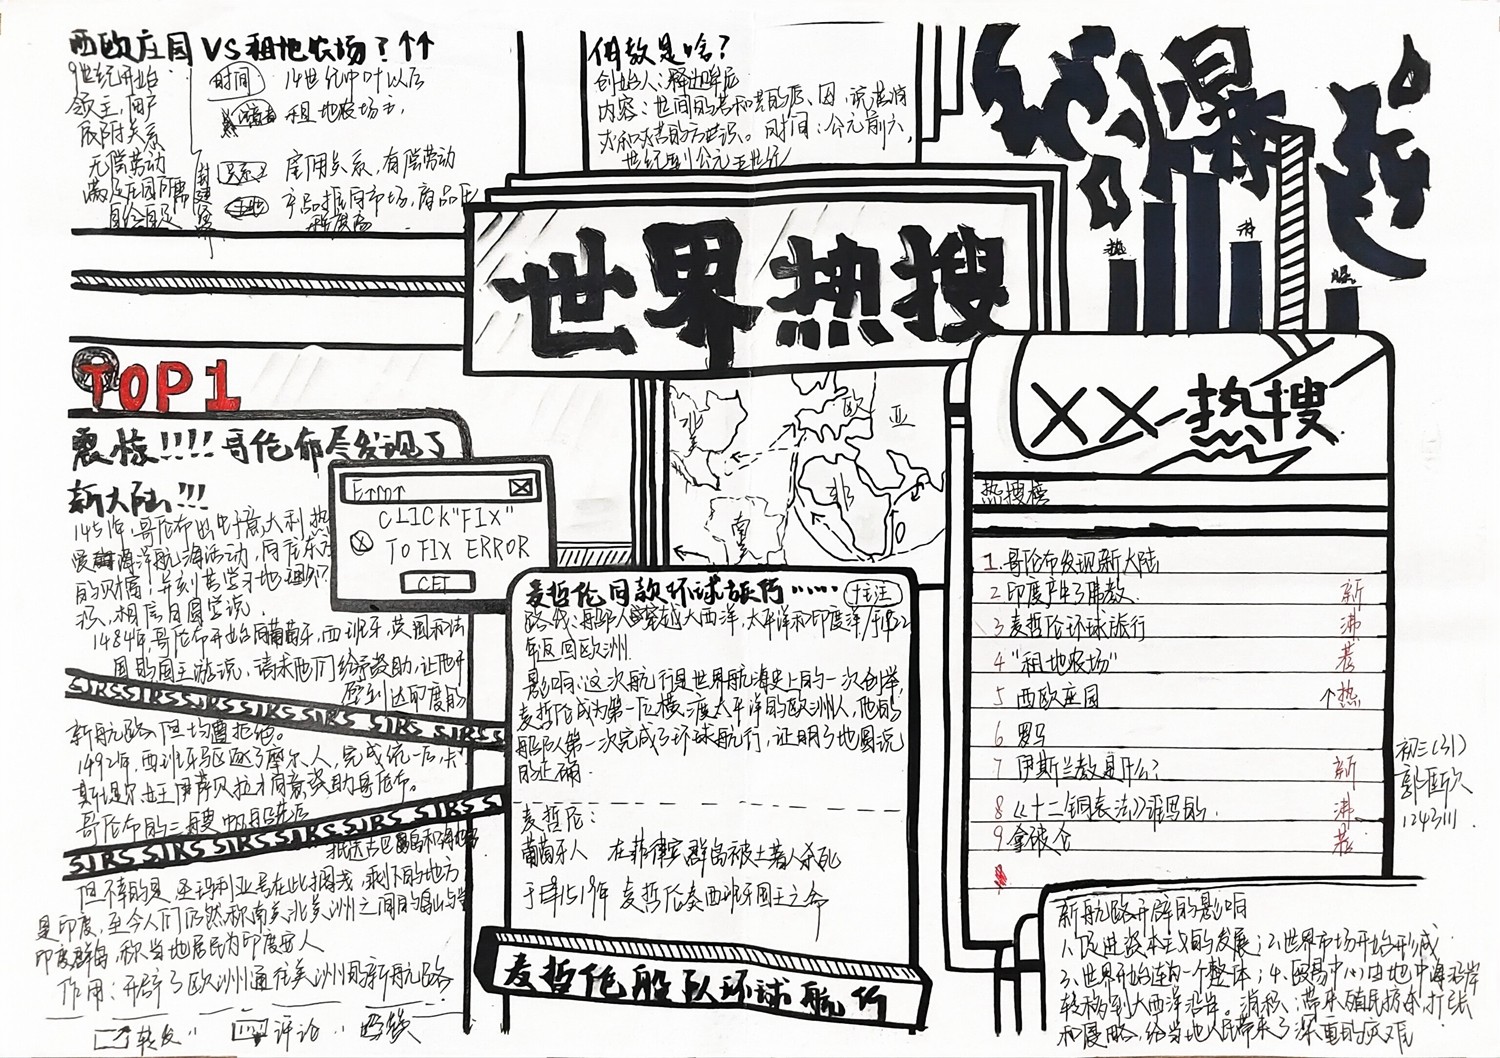 西欧庄园 VS 租地农场？↑↑
9世纪开始
领主，佃户
依附关系
无偿劳动
自给自足
时间 14世纪中叶以后
租地农场主，
关系 雇佣关系，有偿劳动
产品拒向市场，商品化
佛教是啥？
创始人：释迦牟尼
内容：世间的苦和苦的原因，说苦消
灭和灭苦的方世误。时间：公元前六
世纪到公元五世纪
爆
热
沸
爆
世界热搜
TOP1
震惊!!!!哥伦布尽发现了
新大陆!!!
1451年，哥伦布出生于意大利，热
爱海洋航海活动，向往东方
的财富；并刻苦学习地理知
识，相信日圆学说。
1484年，哥伦布开始向葡萄牙，西班牙，英国和法
国的国王游说，请求他们给予资助，让他开
辟到达印度的
新航路，但均遭拒绝。
1492年，西班牙马区逐了摩尔人，完成统一后，卡
斯提尔女王伊莎贝拉才同意资助哥伦布。
哥伦布的三艘帆船先后
抵达古巴岛和海地岛
SJRS SJRS SJRS SJRS SJRS SJRS SJRS
SJRS SJRS SJRS SJRS SJRS SJRS
但不幸的是圣玛利亚号在此搁浅，剩下的地方
是印度，至今人们仍然称南美北美洲之间的岛屿为
印度群岛，称当地居民为印度安人
作用：开辟了欧洲通往美洲的新航路
转发 评论 点赞
Error
CLICK"FIX"
TO FIX ERROR
GET
北
欧
亚
非
南
美
麦哲伦同款环球旅行…… +关注
路线：船队人穿越大西洋，太平洋和印度洋于1522
年返回欧洲.
影响：这次航行是世界航海史上的一次创举
麦哲伦成为第一位横渡太平洋的欧洲人，他的
船队第一次完成了环球航行，证明了地圆说
的正确.
麦哲伦：
葡萄牙人 在菲律宾群岛被土著人杀死
于1519年 麦哲伦奏西班牙国王之命
麦哲伦船队环球航行
XX热搜
热搜榜
1.哥伦布发现新大陆
2 印度产生了佛教. 新
3 麦哲伦环球旅行 沸
4 "租地农场" 荐
5 西欧庄园 ↑热
6 罗马
7 伊斯兰教是什么? 新
8 《十二铜表法》谁写的. 沸
9 拿破仑 荐
初三(31)
1243111
新航路开辟的影响
1、促进资本主义的发展；2、世界市场开始形成
3、世界开始连为一个整体；4、贸易中心由地中海沿岸
转移到大西洋沿岸。消极：带来殖民掠杀扩张
和侵略，给当地人民带来了深重的灾难